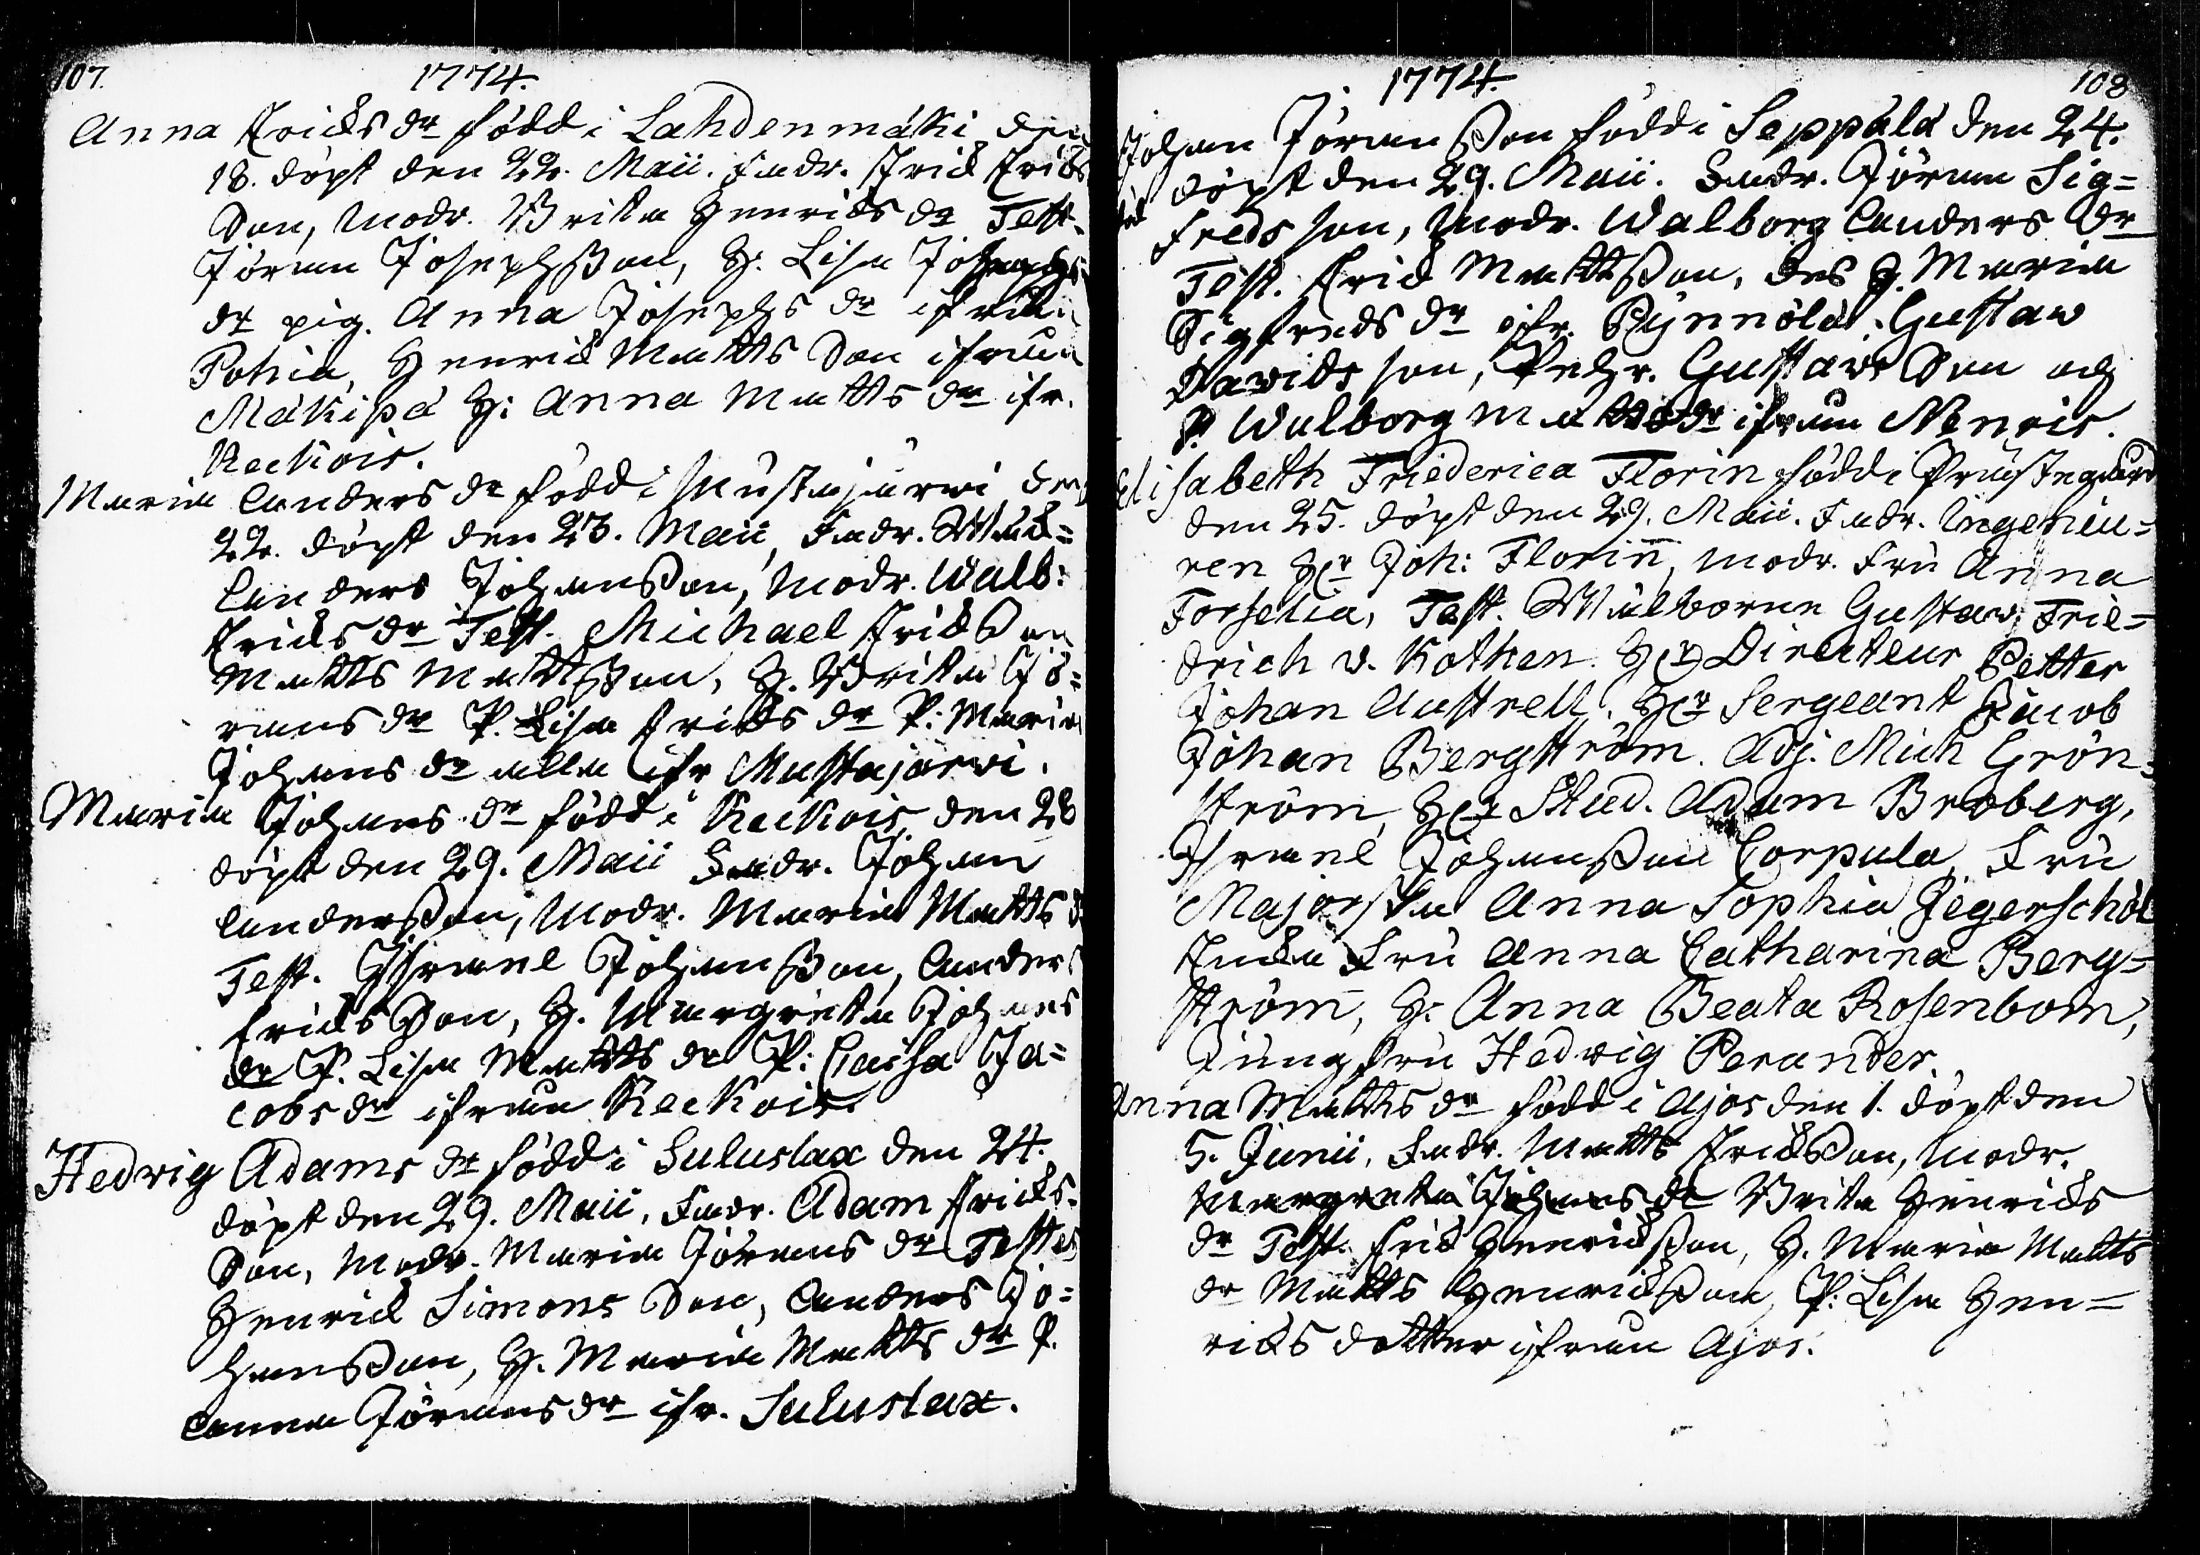 107.
1774.
Anna Ericks dr född i Lahdenmäki den
18. döpt den 22. Maii. Fadr. Erick Ericks
Son, Modr. Brita Henricks dr Test.
Jöran Josephsson, H. Lisa Josephs
dr pig. Anna Josephs dr ifrån
Pohia, Henrick Matts Son ifrån
Mäkipä H: Anna Matts dr ifr.
Keckois.
Maria Anders dr född i Mustajärwi den
22. döpt den 23. Maii, Fadr.
Anders Johansson, Modr. Walb:
Ericks dr Test. Michael Ericksson
Matts Mattsson, H. Brita Jö=
rans dr P. Lisa Ericks dr P: Maria
Johans dr alla ifr Mustajärwi.
Maria Johans dr född i Keckois den 28
döpt den 29. Maii Fadr. Johan
Andersson, Modr. Maria Matts d
Test. Israel Johansson, Anders
Ericks Son, H. Margreta Johans
dr P. Lisa Matts dr P: Caisa Ja=
cobs dr ifrån Keckois
Hedvig Adams dr född i Suluslax den 24.
döpt den 29. Maii, Fadr. Adam Ericks
Son, Modr. Maria Jörans dr Testes
Henrick Simons Son, Anders Jo=
hansson, H. Maria Matts dr P.
Anna Jörans dr ifr. Suluslax.
108
1774.
Johan Jöransson född i Seppälä den 24.
döpt den 29. Maii. Fadr. Jöran Sig=
freds son, Modr. Walborg Anders dr
Test. Erick Mattsson, des H. Maria
Sigfreds dr ifr. Pynnölä. Gustaw
Davids son, Pehr. Gustavs Son och
P. Walborg Matts dr ifrån Nenois.
Elisabeth Friederica Florin född i Prustegård
den 25. döpt den 29. Maii. Fadr. Ingenieu=
ren Hr Joh: Florin, Modr. Fru Anna
Forselia, Test. Wälborne Gustav Frie=
drich v. Kothen. Hr Directeur Petter
Johan Austrell. Hr Sergeant Jacob
Johan Bergström. Adj. Mich Grön=
ström, Hr Stud. Adam Broberg,
Israel Johansson Corpula, Fru
Majorska Anna Sophia Jegerschöl
Enka Fru Anna Catharina Berg=
ström, H: Anna Beata Rosenbom,
Jungfru Hedvig Perander.
Anna Matts dr född i Ajos den 1. döpt den
5. Junii, Fadr. Matts Ericksson, Modr.
Margreta Johans dr Brita Henricks
dr Test. Erick Henricksson, H. Maria Matts
dr Matts Henricksson, P: Lisa Hen=
ricks dotter ifrån Ajos.